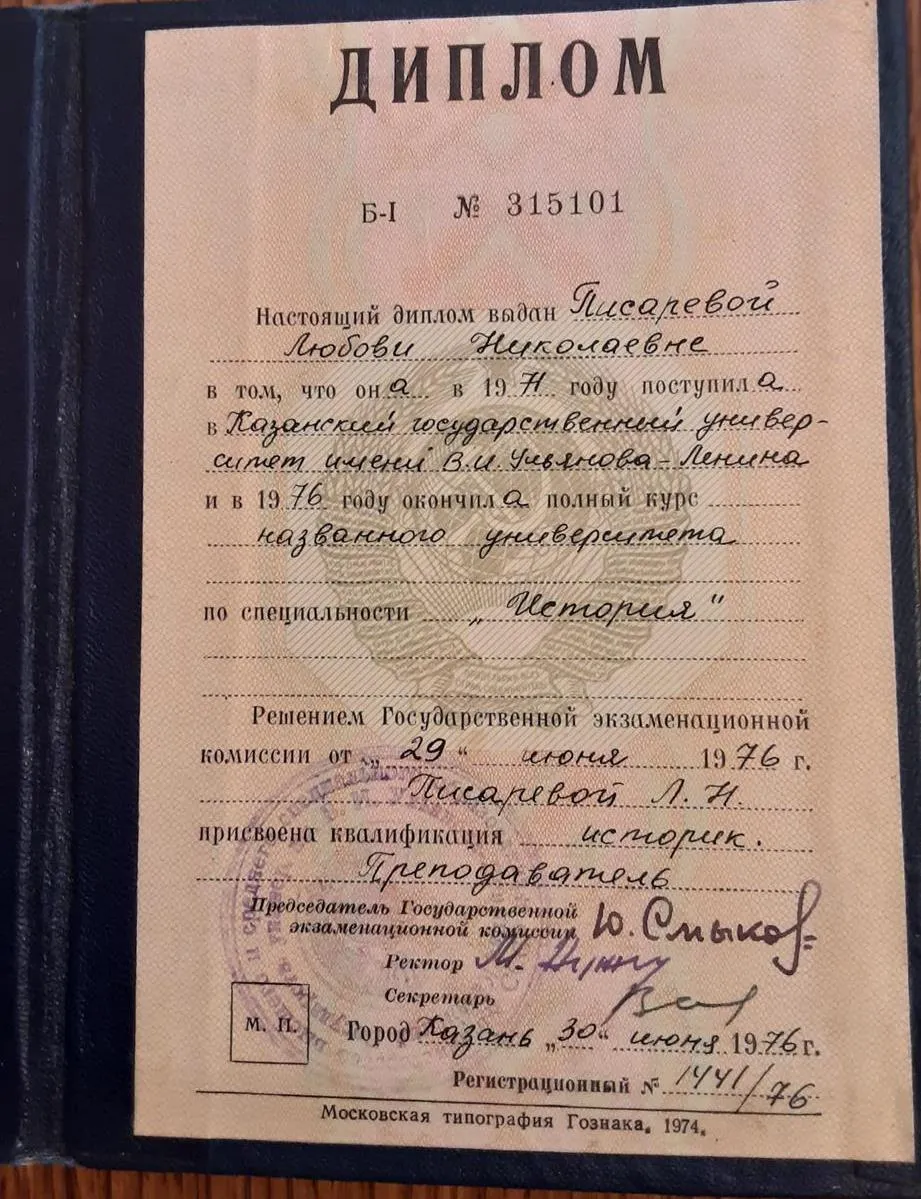 ДИПЛОМ
Б-I № 315101
Настоящий диплом выдан Писаревой
Любови Николаевне
в том, что она в 1971 году поступила
в Казанский государственный универ-
ситет имени В.И. Ульянова-Ленина
и в 1976 году окончила полный курс
названного университета
по специальности „История"
Решением Государственной экзаменационной
комиссии от „29" июня 1976 г.
Писаревой Л. Н.
присвоена квалификация историк.
Преподаватель
Председатель Государственной
экзаменационной комиссии Ю. Смыков
Ректор М.
Секретарь
М. П.
Город Казань „30" июня 1976 г.
Регистрационный № 1441/76
Московская типография Гознака. 1974.